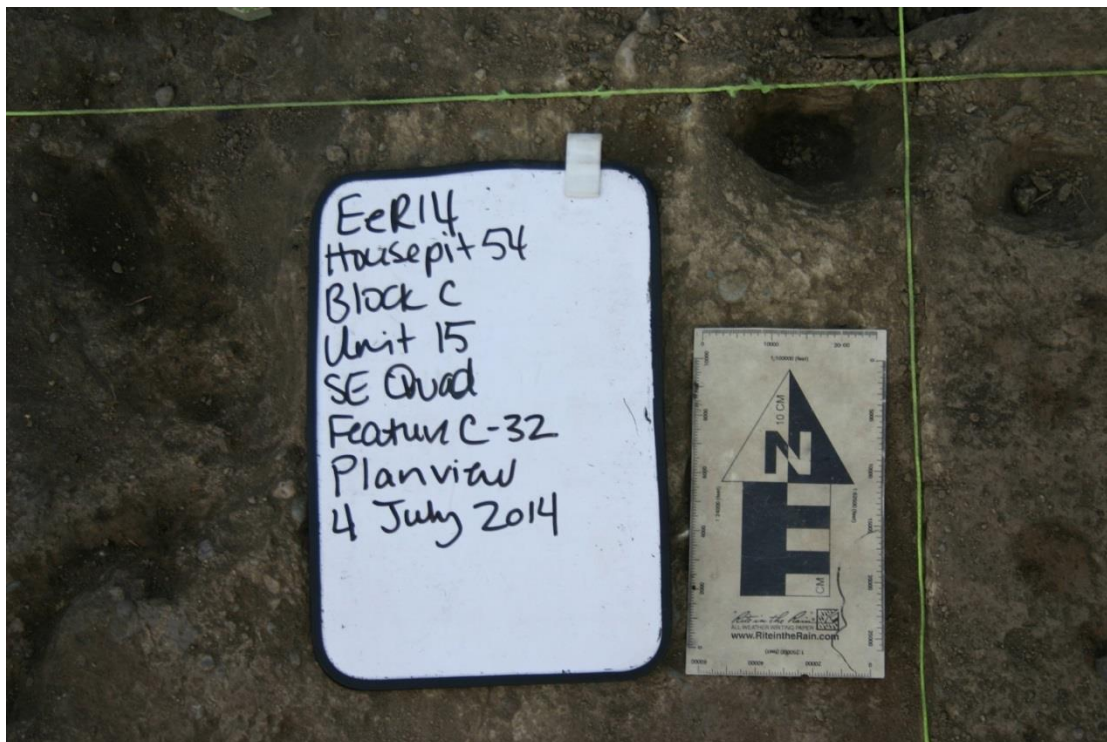 EeR14
Housepit 54
Block C
Unit 15
SE Quad
Feature C-32
Planview
4 July 2014
10 CM
N
CM
"Rite in the Rain"
ALL-WEATHER WRITING PAPER
www.RiteintheRain.com